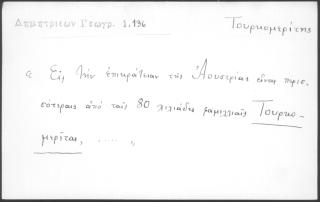 Δημητριεων Γεωγρ. 1.196
Τουρκομερίτης
α Εις την επικράτειαν της Αουστρίας είναι περισ-
σότεραις από ταις 80 χιλιάδες φαμιλλιαίς Τουρκο-
μερίται, ..... ,